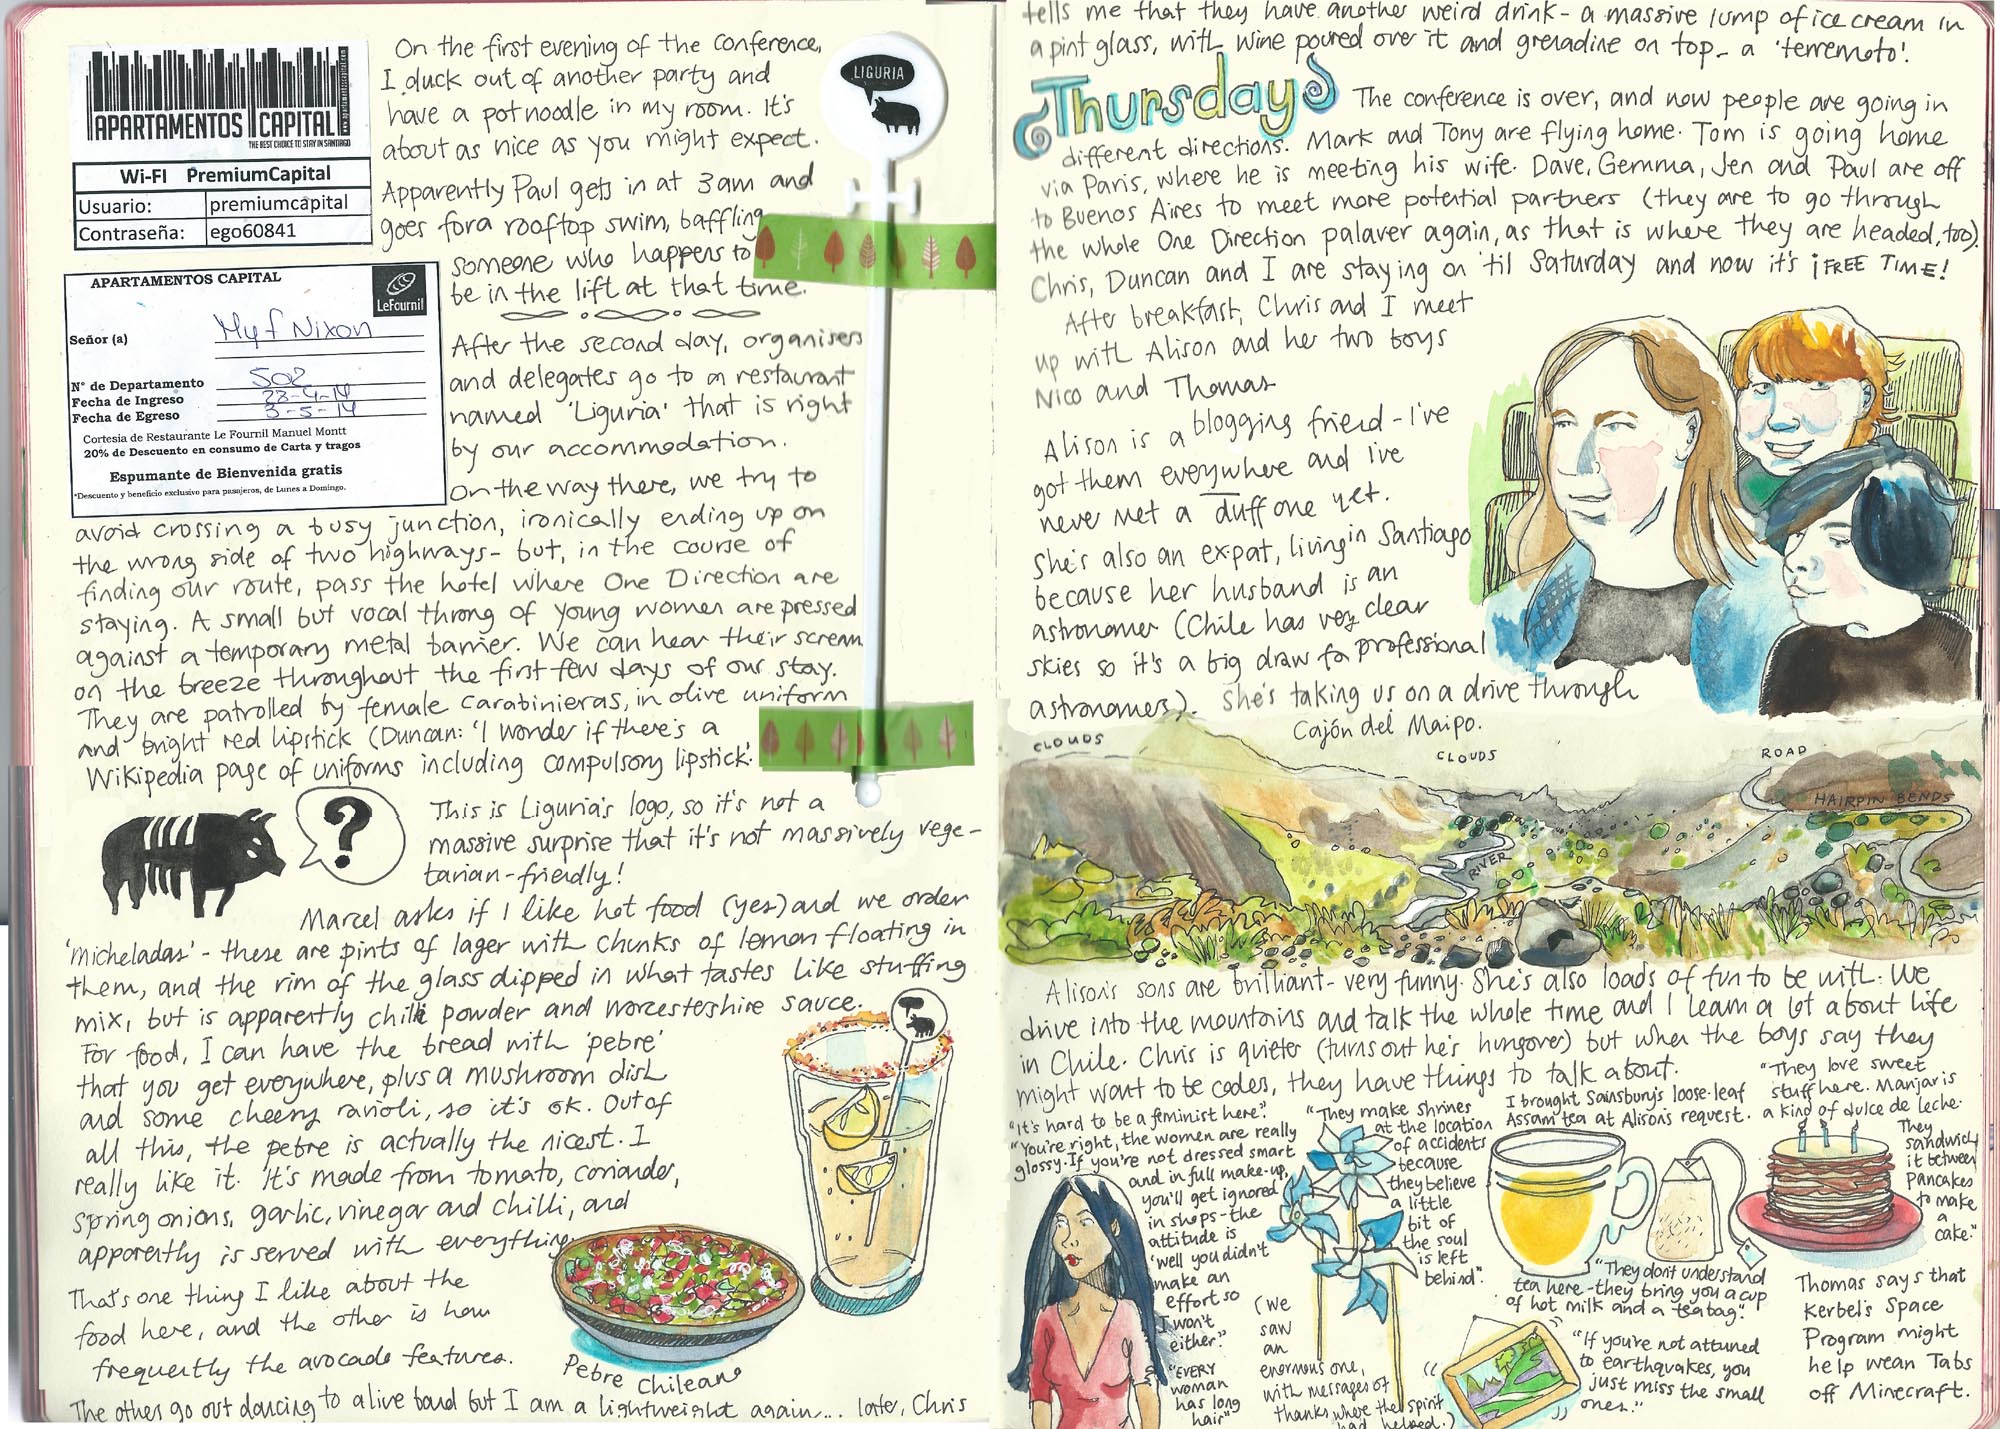 APARTAMENTOS CAPITAL
THE BEST CHOICE TO STAY IN SANTIAGO
Wi-FI PremiumCapital
Usuario: premiumcapital
Contraseña: ego60841
APARTAMENTOS CAPITAL
LeFournil
Señor (a) Myf Nixon
N° de Departamento 502
Fecha de Ingreso 28-4-14
Fecha de Egreso 3-5-14
Cortesia de Restaurante Le Fournil Manuel Montt
20% de Descuento en consumo de Carta y tragos
Espumante de Bienvenida gratis
*Descuento y beneficio exclusivo para pasajeros, de Lunes a Domingo.
On the first evening of the conference,
I duck out of another party and
have a pot noodle in my room. It's
about as nice as you might expect.
Apparently Paul gets in at 3am and
goes for a rooftop swim, baffling
someone who happens to
be in the lift at that time.
LIGURIA
After the second day, organisers
and delegates go to a restaurant
named 'Liguria' that is right
by our accommodation.
On the way there, we try to
avoid crossing a busy junction, ironically ending up on
the wrong side of two highways - but, in the course of
finding our route, pass the hotel where One Direction are
staying. A small but vocal throng of young women are pressed
against a temporary metal barrier. We can hear their scream
on the breeze throughout the first few days of our stay.
They are patrolled by female Carabinieras, in olive uniform
and bright red lipstick (Duncan: 'I wonder if there's a
Wikipedia page of uniforms including compulsory lipstick.'
?
This is Liguria's logo, so it's not a
massive surprise that it's not massively vege-
tarian-friendly!
Marcel asks if I like hot food (yes) and we order
'micheladas' - these are pints of lager with chunks of lemon floating in
them, and the rim of the glass dipped in what tastes like stuffing
mix, but is apparently chilli powder and worcestershire sauce.
For food, I can have the bread with 'pebre'
that you get everywhere, plus a mushroom dish
and some cheesy ravioli, so it's ok. Out of
all this, the pebre is actually the nicest. I
really like it. It's made from tomato, coriander,
spring onions, garlic, vinegar and chilli, and
apparently is served with everything.
That's one thing I like about the
food here, and the other is how
frequently the avocado features.
Pebre Chileano
The others go out dancing to a live band but I am a lightweight again... later, Chris
tells me that they have another weird drink - a massive lump of ice cream in
a pint glass, with wine poured over it and grenadine on top - a 'terremoto'.
Thursday
The conference is over, and now people are going in
different directions. Mark and Tony are flying home. Tom is going home
via Paris, where he is meeting his wife. Dave, Gemma, Jen and Paul are off
to Buenos Aires to meet more potential partners (they are to go through
the whole One Direction palaver again, as that is where they are headed, too).
Chris, Duncan and I are staying on 'til Saturday and now it's ¡FREE TIME!
After breakfast, Chris and I meet
up with Alison and her two boys
Nico and Thomas
Alison is a blogging friend - I've
got them everywhere and I've
never met a duff one yet.
She's also an expat, living in Santiago
because her husband is an
astronomer (Chile has very clear
skies so it's a big draw for professional
astronomers). She's taking us on a drive through
Cajón del Maipo.
CLOUDS
CLOUDS
ROAD
HAIRPIN BENDS
RIVER
Alison's sons are brilliant - very funny. She's also loads of fun to be with. We
drive into the mountains and talk the whole time and I learn a lot about life
in Chile. Chris is quieter (turns out he's hungover) but when the boys say they
might want to be coders, they have things to talk about.
"It's hard to be a feminist here".
"You're right, the women are really
glossy. If you're not dressed smart
and in full make-up,
you'll get ignored
in shops - the
attitude is
'well you didn't
make an
effort so
I won't
either.'"
"EVERY
woman
has long
hair"
"They make shrines
at the location
of accidents
because
they believe
a little
bit of
the soul
is left
behind".
(we
saw
an
enormous one,
with messages of
thanks where the spirit
had helped.)
I brought Sainsbury's loose-leaf
Assam tea at Alison's request.
"They don't understand
tea here - they bring you a cup
of hot milk and a teabag".
"They love sweet
stuff here. Manjar is
a kind of dulce de leche.
They
sandwich
it between
pancakes
to make
a
cake."
"If you're not attuned
to earthquakes, you
just miss the small
ones."
Thomas says that
Kerbel's Space
Program might
help wean Tabs
off Minecraft.